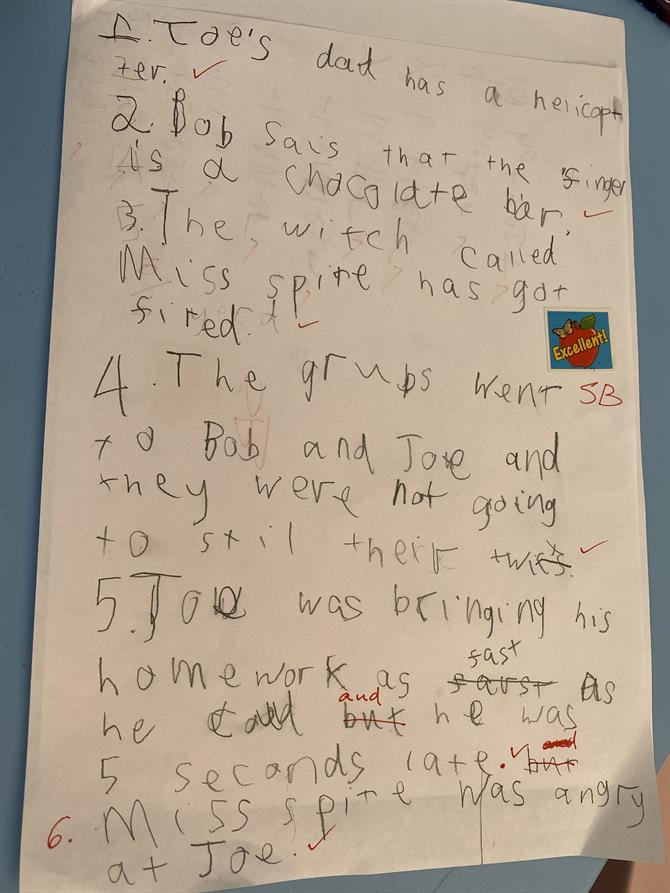 1. Joe's dad has a helicopt
ter.
2. Bob sais that the finger
is a chocolate bar.
3. The witch called
Miss spite has got
fired.
Excellent!
4. The grubs went SB
to Bob and Joe and
they were not going
to stil their twits.
5. Joe was bringing his
fast
homework as farst as
and
he could but he was
and
5 seconds late. but
6. Miss spite was angry
at Joe.